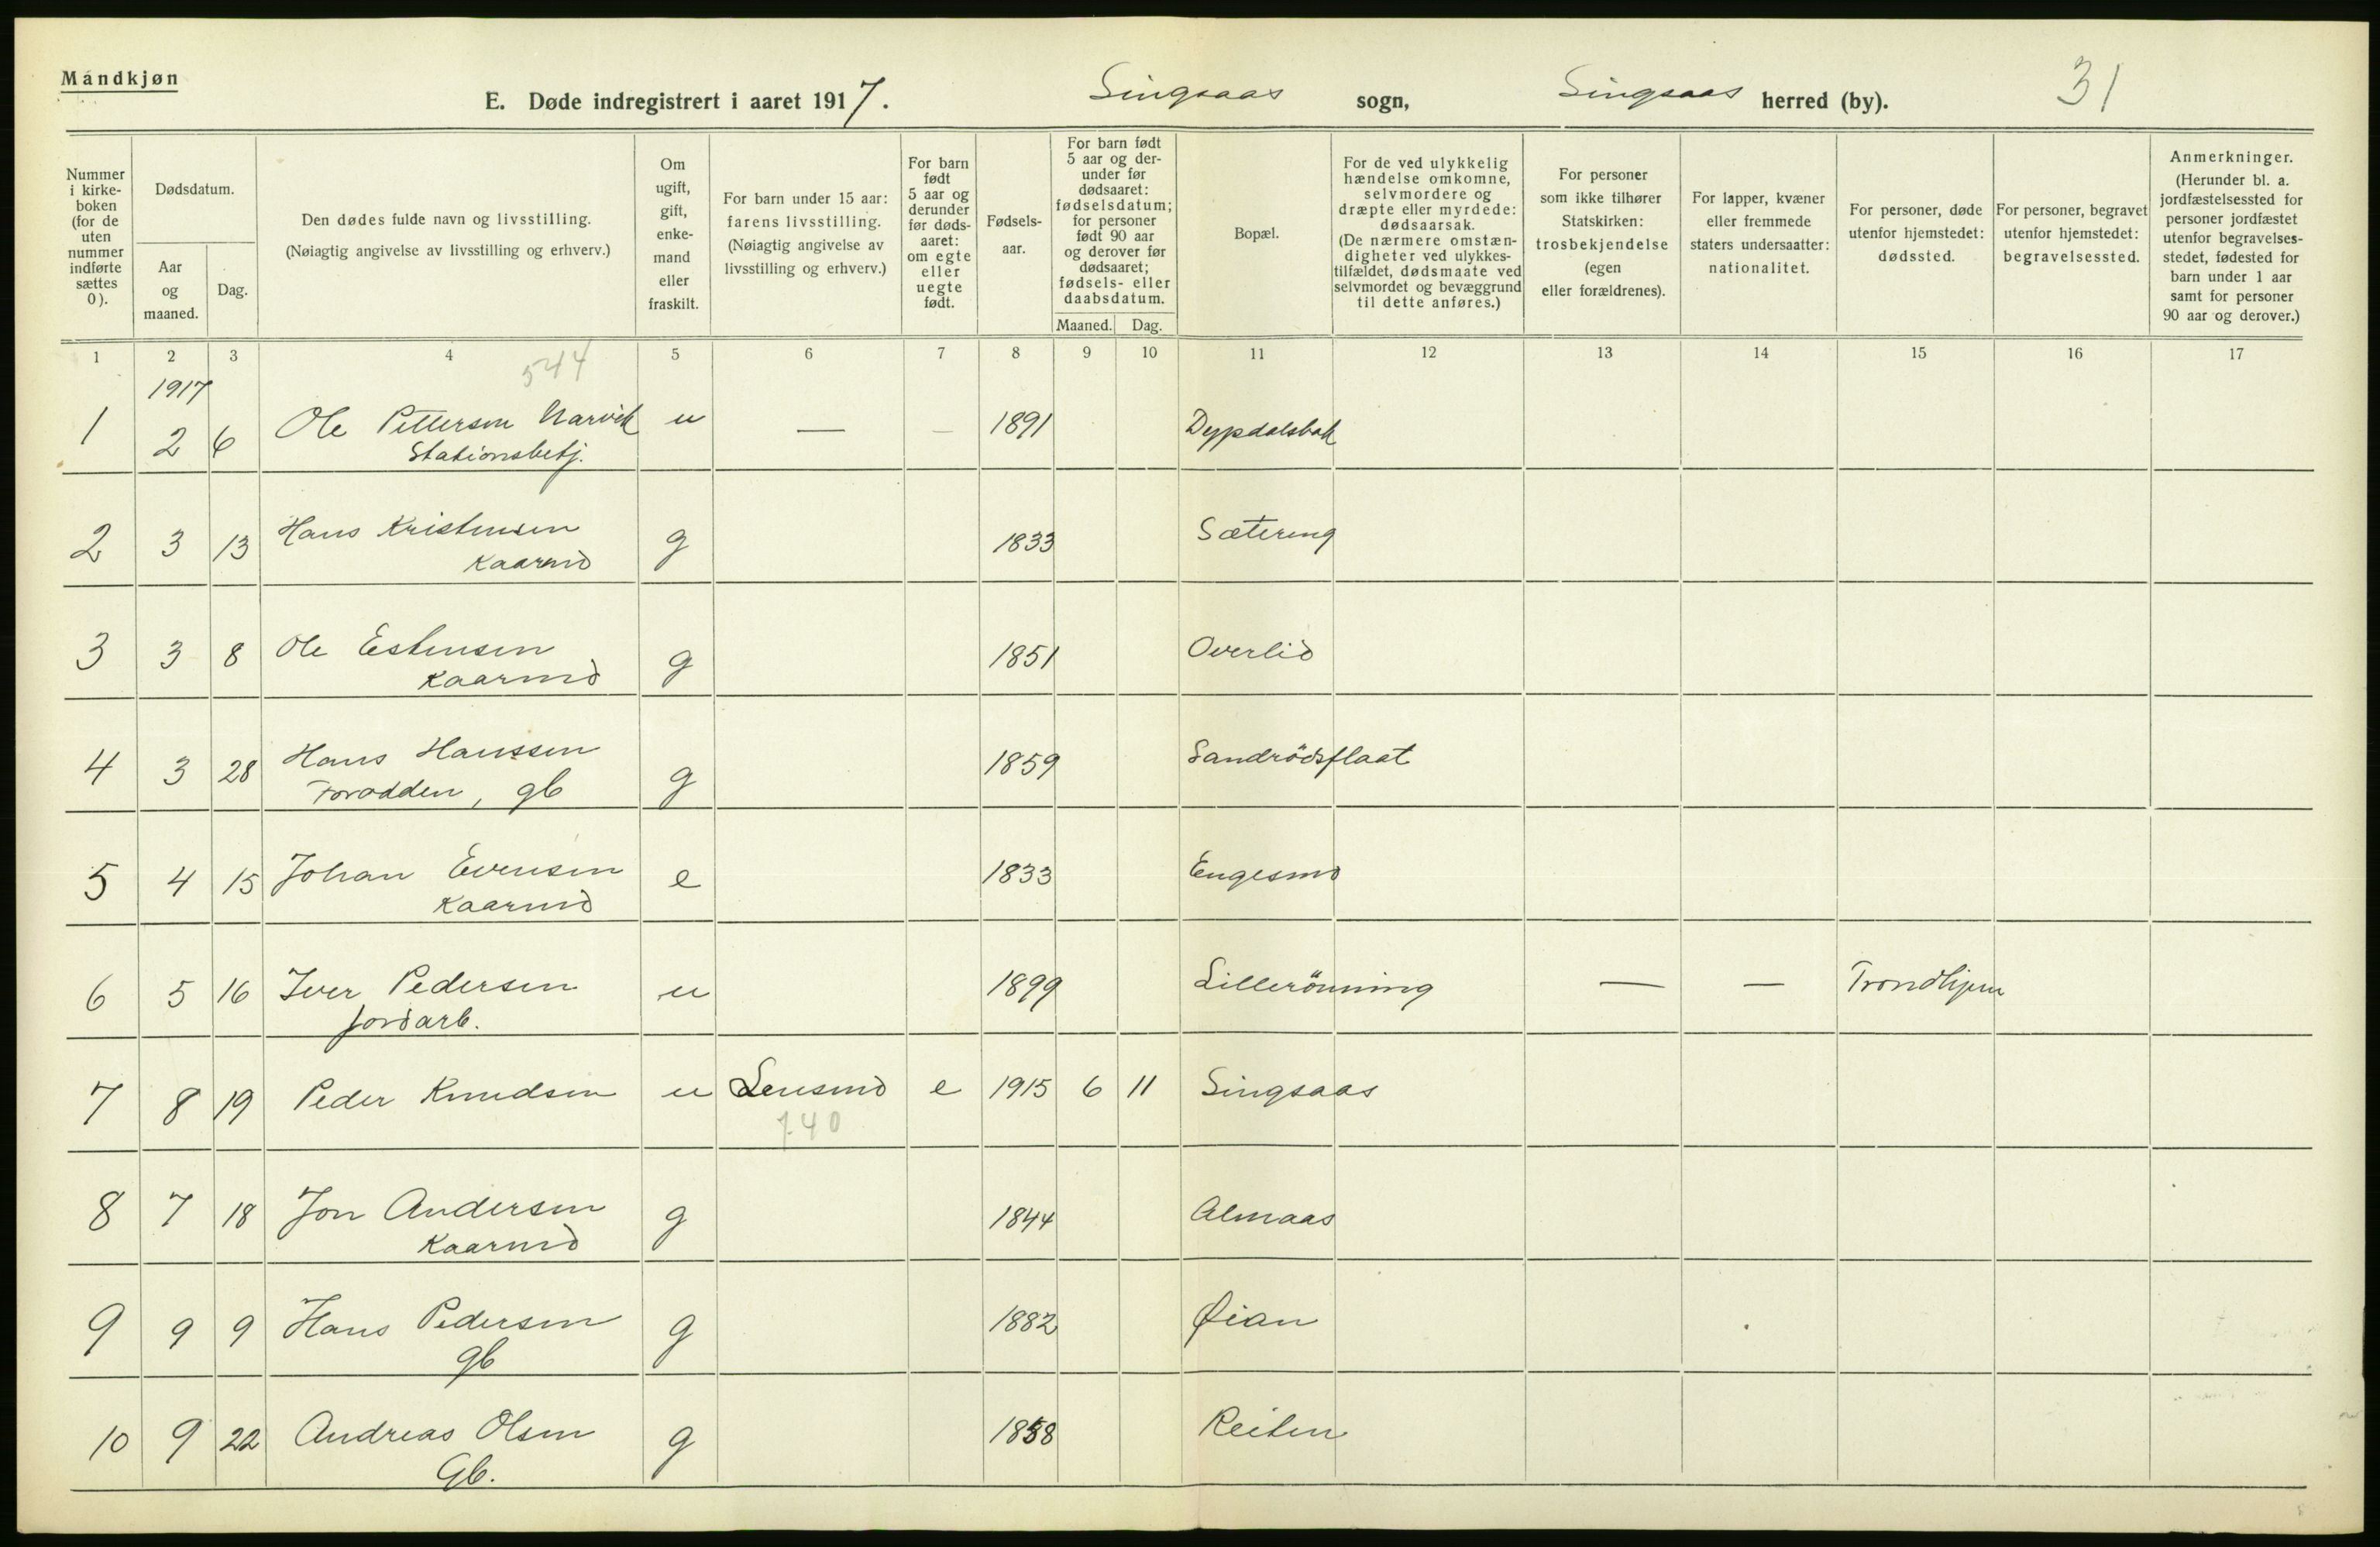 Mandkjøn
E. Døde indregistrert i aaret 1917. Singsaas sogn, Singsaas herred (by). 31
Nummer i kirke-boken (for de uten nummer indførte sættes 0).
Dødsdatum.
Aar og maaned.
Dag.
Den dødes fulde navn og livsstilling.
(Nøiagtig angivelse av livsstilling og erhverv.)
Om ugift, gift, enke-mand eller fraskilt.
For barn under 15 aar: farens livsstilling. (Nøiagtig angivelse av livsstilling og erhverv.)
For barn født 5 aar og derunder før døds-aaret: om egte eller uegte født.
Fødsels-aar.
For barn født 5 aar og der-under før dødsaaret: fødselsdatum; for personer født 90 aar og derover før dødsaaret; fødsels- eller daabsdatum.
Maaned. Dag.
Bopæl.
For de ved ulykkelig hændelse omkomne, selvmordere og dræpte eller myrdede: dødsaarsak. (De nærmere omstæn-digheter ved ulykkes-tilfældet, dødsmaate ved selvmordet og bevæggrund til dette anføres.)
For personer som ikke tilhører Statskirken: trosbekjendelse (egen eller forældrenes).
For lapper, kvæner eller fremmede staters undersaatter: nationalitet.
For personer, døde utenfor hjemstedet: dødssted.
For personer, begravet utenfor hjemstedet: begravelsessted.
Anmerkninger. (Herunder bl. a. jordfæstelsessted for personer jordfæstet utenfor begravelses-stedet, fødested for barn under 1 aar samt for personer 90 aar og derover.)
1 2 3 4 5 6 7 8 9 10 11 12 13 14 15 16 17
544
1917
1 2 6 Ole Pettersen Narvik u — — 1891 Dypdalsbak
Stationsbetj.
2 3 13 Hans Kristensen g 1833 Sætereng
Kaarmd
3 3 8 Ole Estensen g 1851 Overlid
Kaarmd
4 3 28 Hans Hanssen g 1859 Sandrödsflaat
Forodden, gb
5 4 15 Johan Evensen e 1833 Engesmo
Kaarmd
6 5 16 Iver Pedersen u 1899 Lillerönning — — Trondhjem
jordarb.
7 8 19 Peder Knudsen u Lensmd e 1915 6 11 Singsaas
740
8 7 18 Jon Andersen g 1844 Almaas
Kaarmd
9 9 9 Hans Pedersen g 1882 Øian
gb
10 9 22 Andreas Olsen g 1858 Reiten
Gb.